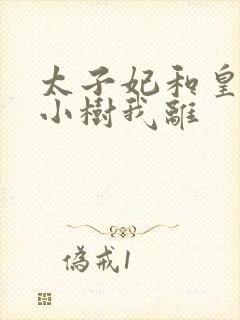 太子妃和皇
小樹我離
偽戒1